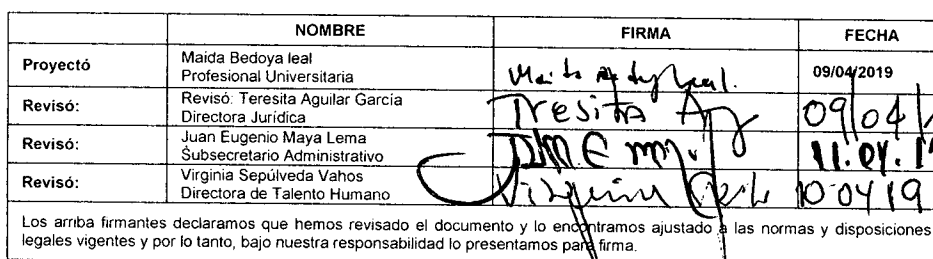 NOMBRE FIRMA FECHA
Proyectó Maida Bedoya leal
Profesional Universitaria
Maida Bedoya Leal. 09/04/2019
Revisó: Revisó: Teresita Aguilar García
Directora Jurídica
Tresita Ag 09/04/
Revisó: Juan Eugenio Maya Lema
Subsecretario Administrativo
11.04.1
Revisó: Virginia Sepúlveda Vahos
Directora de Talento Humano
10 04 19
Los arriba firmantes declaramos que hemos revisado el documento y lo encontramos ajustado a las normas y disposiciones
legales vigentes y por lo tanto, bajo nuestra responsabilidad lo presentamos para firma.